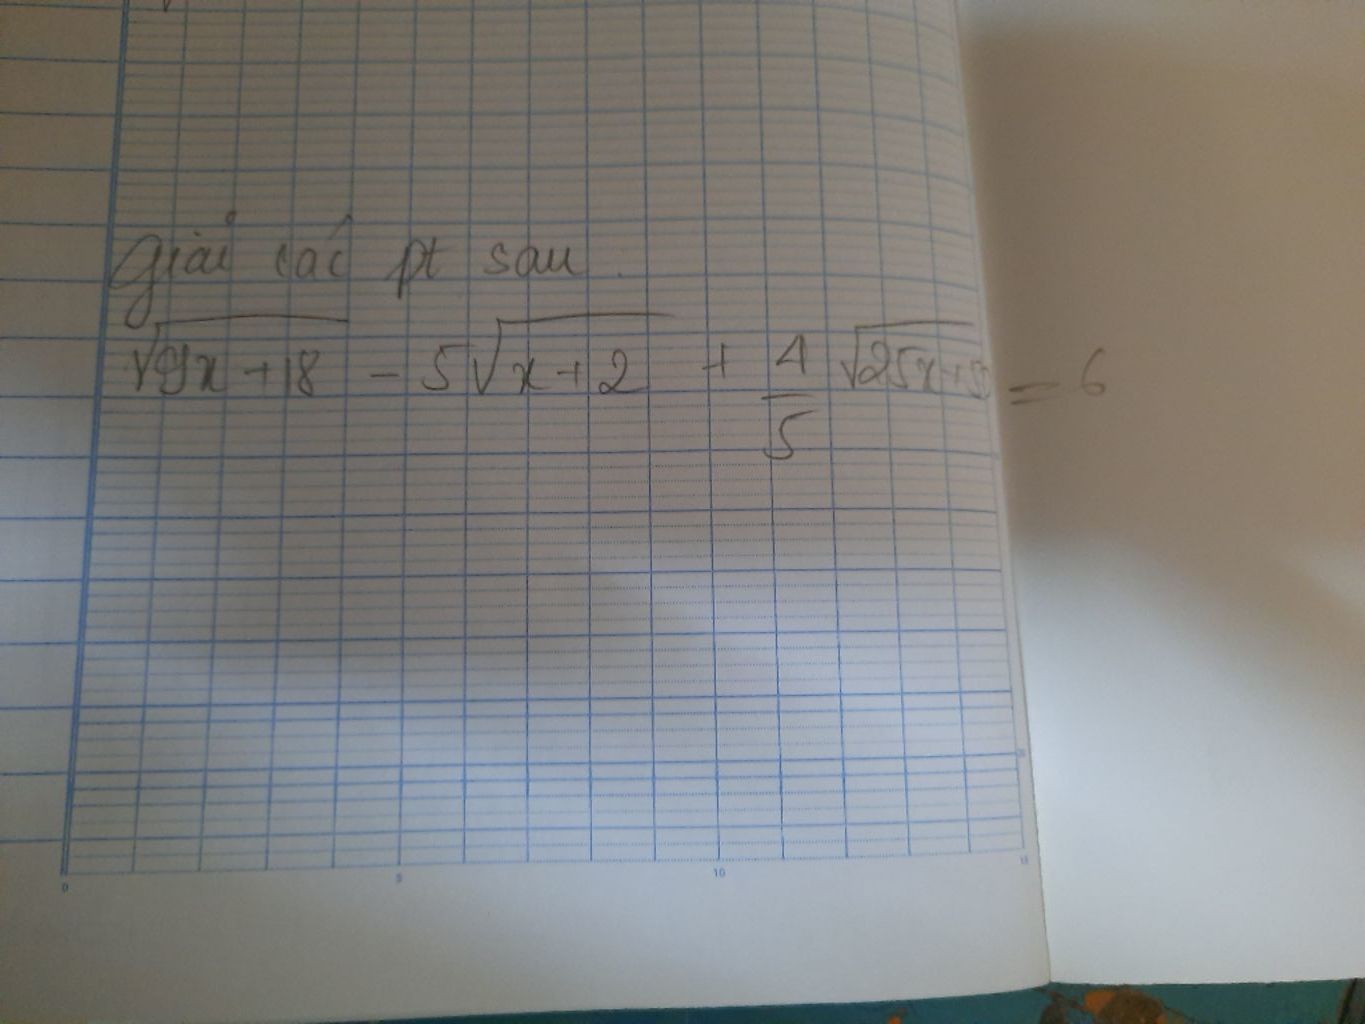 Giải các pt sau :
√9x + 18 - 5√x + 2 + 4/5 √25x + 50 = 6
0 5 10 15